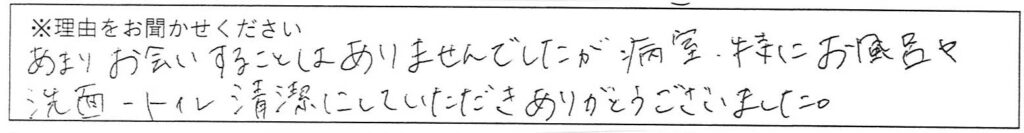 ※理由をお聞かせください
あまりお会いすることはありませんでしたが病室、特にお風呂や
洗面−トイレ清潔にしていただきありがとうございました。